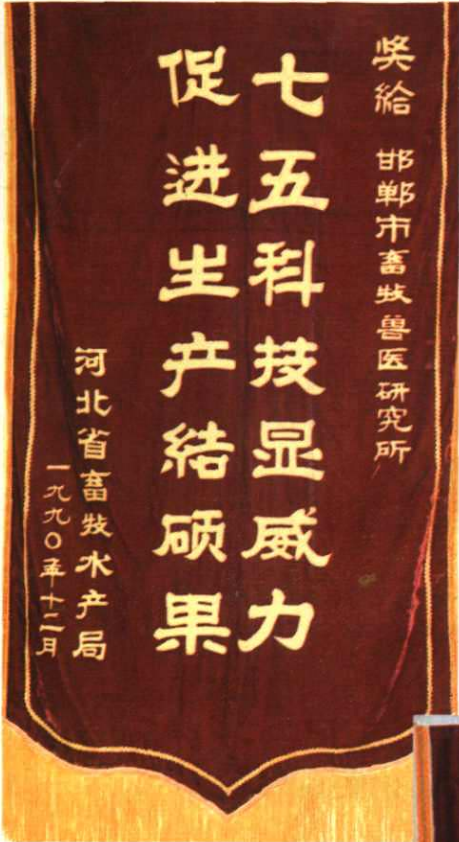 奖给 邯郸市畜牧兽医研究所
七五科技显威力
促进生产结硕果
河北省畜牧水产局
一九九〇年十二月